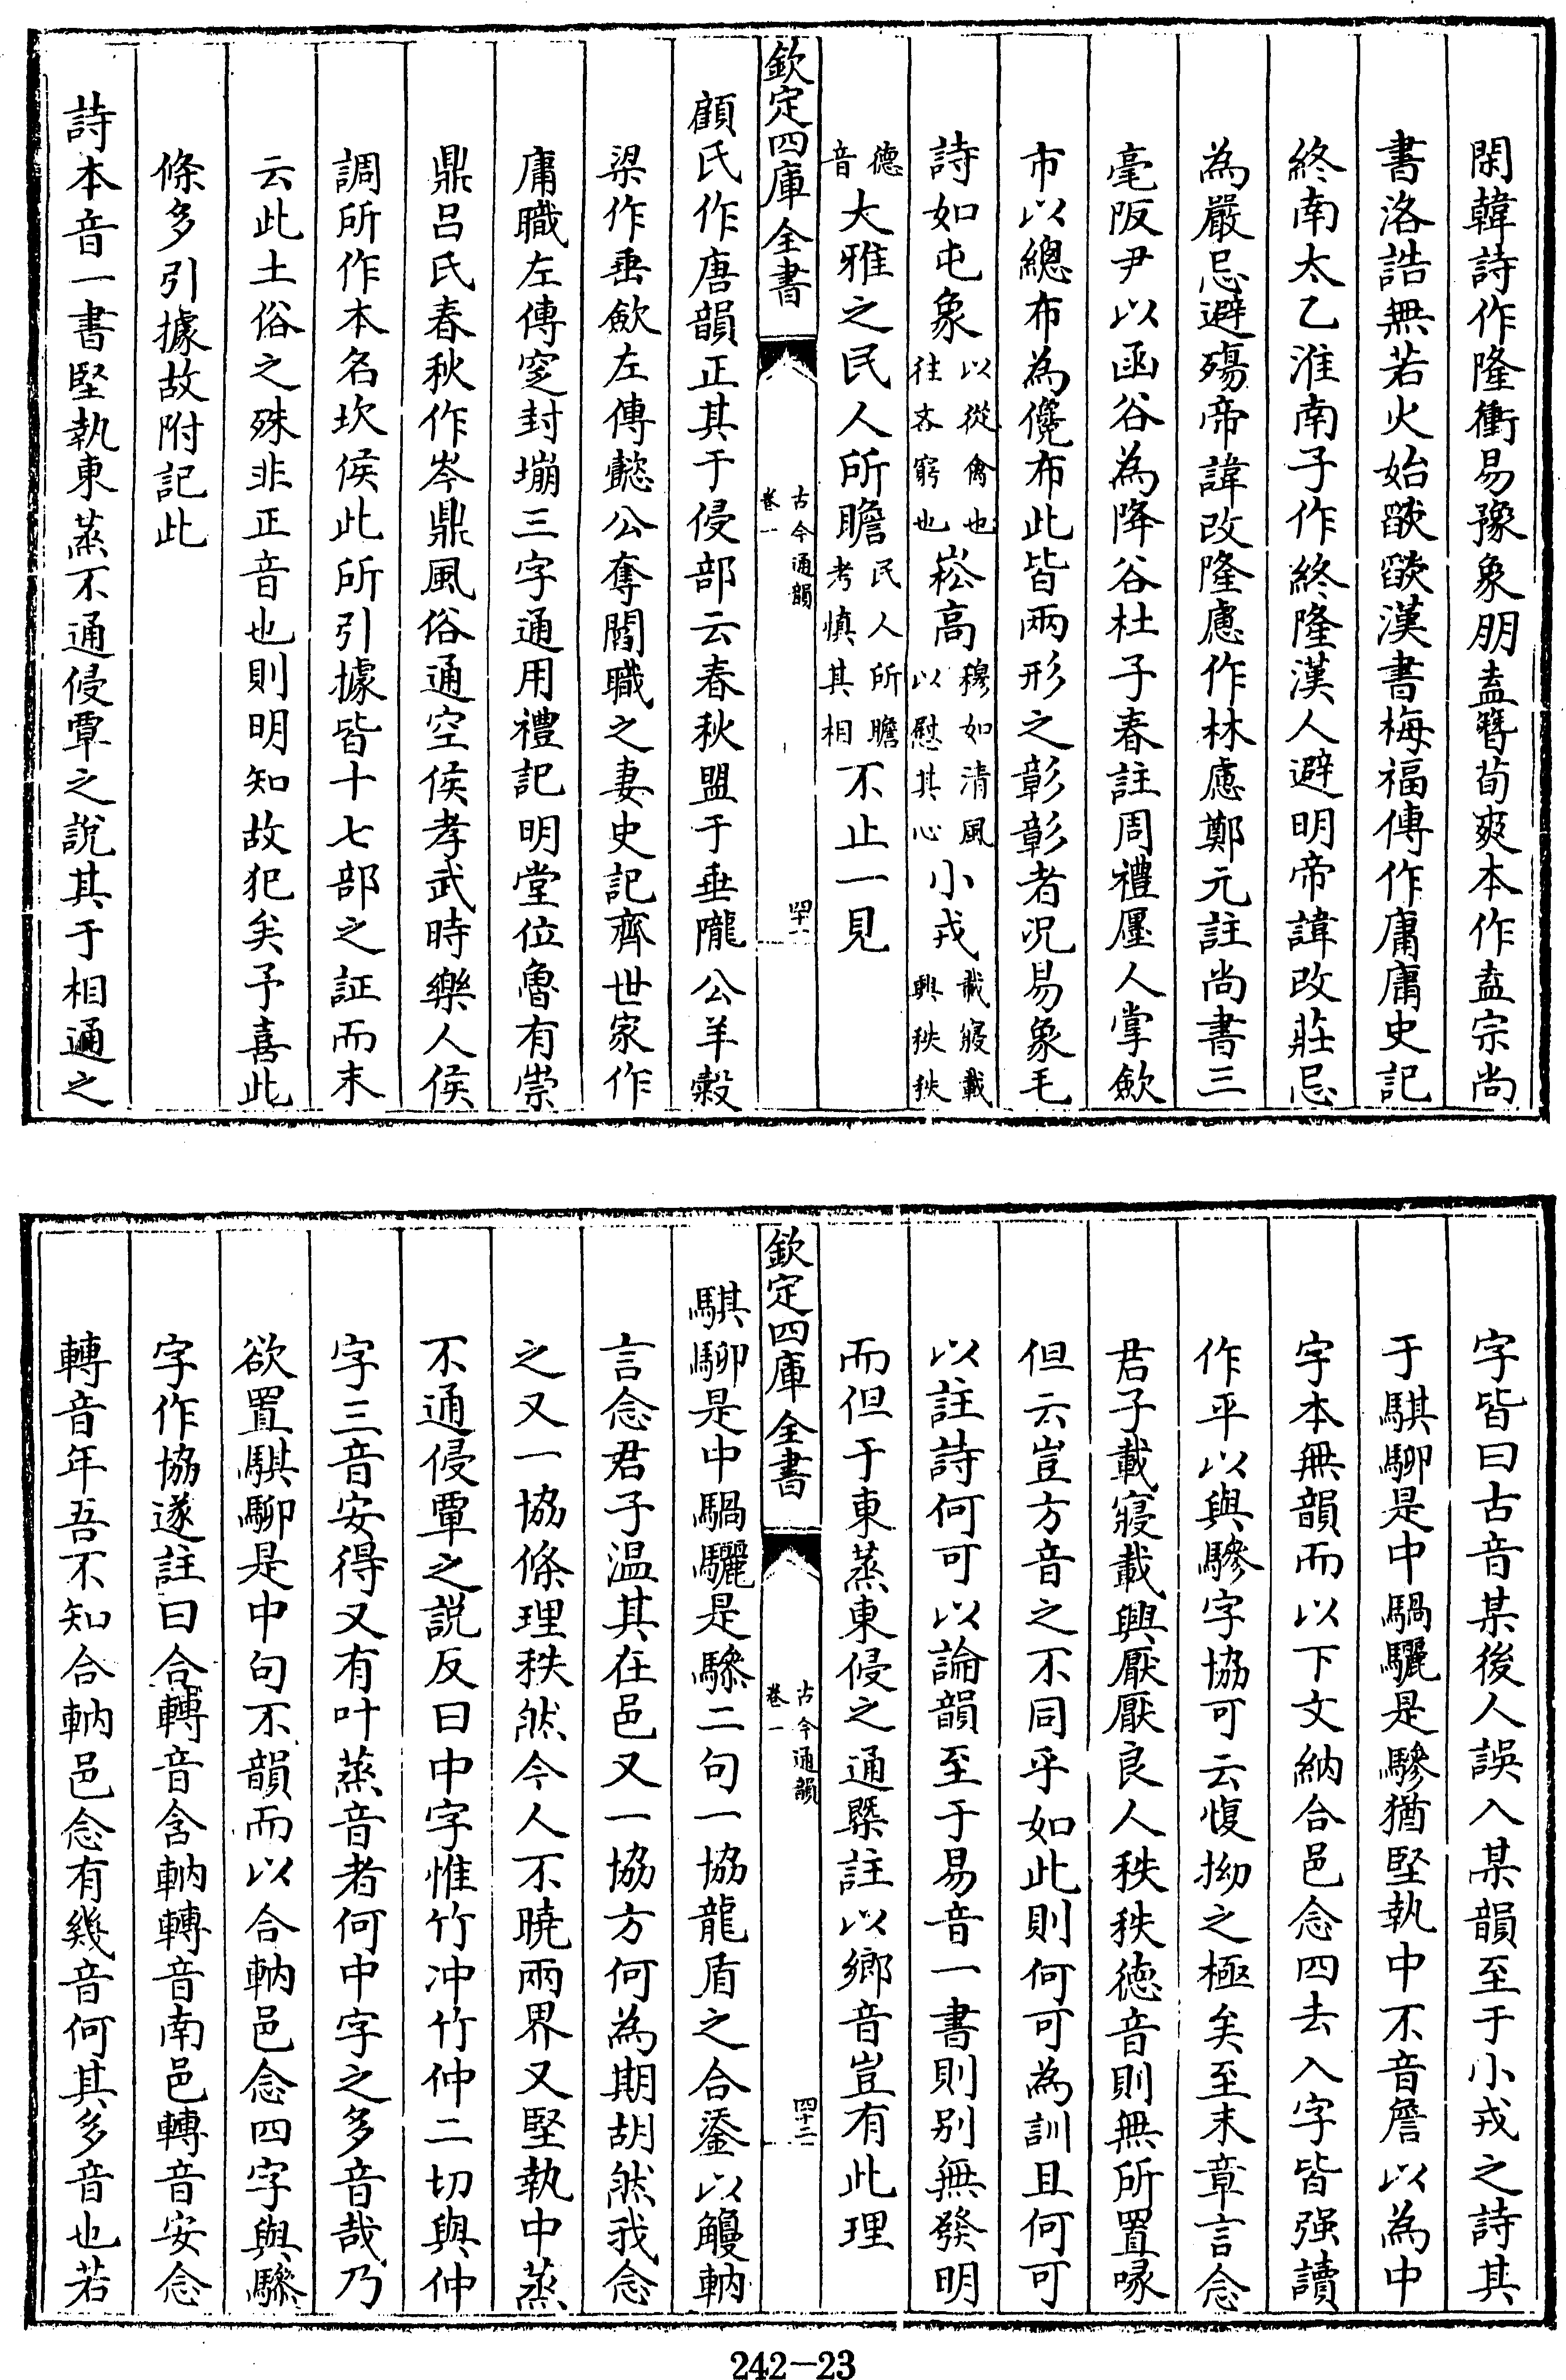 閑韓詩作隆衝易豫象朋盍簪荀爽本作盍宗尚
書洛誥無若火始燄燄漢書梅福傳作庸庸史記
終南太乙淮南子作終隆漢人避明帝諱改莊忌
為嚴忌避殤帝諱改隆慮作林慮鄭元註尚書三
亳阪尹以函谷為降谷杜子春註周禮廛人掌斂
市以總布為儳布此皆兩形之彰彰者況易象毛
詩如屯象以從禽也往吝窮也崧高穆如清風以慰其心小戎載寢載興秩秩
德音大雅之民人所瞻民人所瞻考慎其相不止一見
欽定四庫全書 古今通韻 卷一 四十二
顧氏作唐韻正其于侵部云春秋盟于垂隴公羊榖
梁作垂斂左傳懿公奪閻職之妻史記齊世家作
庸職左傳窆封堋三字通用禮記明堂位魯有崇
鼎呂氏春秋作岑鼎風俗通空侯孝武時樂人侯
調所作本名坎侯此所引據皆十七部之証而末
云此土俗之殊非正音也則明知故犯矣予喜此
條多引據故附記此
詩本音一書堅執東蒸不通侵覃之說其于相通之
字皆曰古音某後人誤入某韻至于小戎之詩其
于騏駵是中騧驪是驂猶堅執中不音詹以為中
字本無韻而以下文納合邑念四去入字皆强讀
作平以與驂字協可云愎拗之極矣至末章言念
君子載寢載興厭厭良人秩秩德音則無所置喙
但云豈方音之不同乎如此則何可為訓且何可
以註詩何可以論韻至于易音一書則别無發明
而但于東蒸東侵之通槩註以鄉音豈有此理
欽定四庫全書 古今通韻 卷一 四十三
騏駵是中騧驪是驂二句一協龍盾之合鋈以觼軜
言念君子温其在邑又一協方何為期胡然我念
之又一協條理秩然今人不曉兩界又堅執中蒸
不通侵覃之説反曰中字惟竹冲竹仲二切與仲
字三音安得又有叶蒸音者何中字之多音哉乃
欲置騏駵是中句不韻而以合軜邑念四字與驂
字作協遂註曰合轉音含軜轉音南邑轉音安念
轉音年吾不知合軜邑念有幾音何其多音也若
242-23